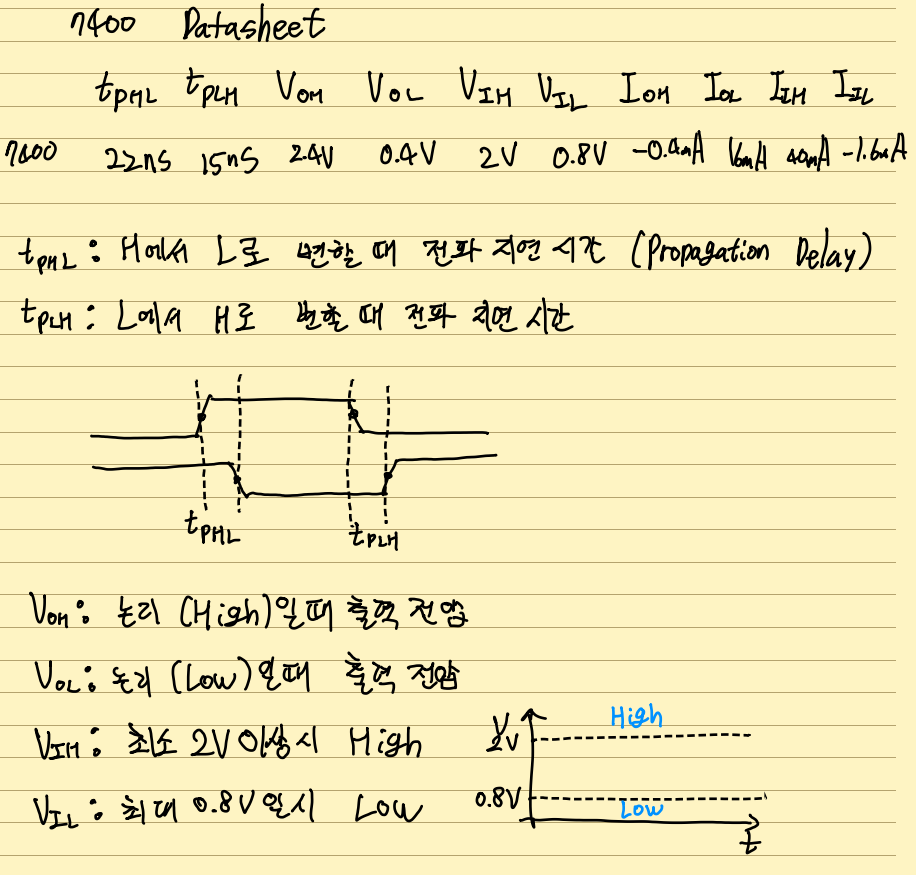 7400 Datasheet
tPHL tPLH VOH VOL VIH VIL IOH IOL IIH IIL
7400 22ns 15ns 2.4V 0.4V 2V 0.8V 16mA -1.6mA
tPHL: H에서 L로 변할 때 전파 지연 시간 (Propagation Delay)
tPLH: L에서 H로 변할 때 전파 지연 시간
tPHL tPLH
VOH: 논리 (High)일때 출력 전압
VOL: 논리 (Low)일때 출력 전압
VIH: 최소 2V 이상시 High
VIL: 최대 0.8V 일시 Low
V
2V High
0.8V Low
t